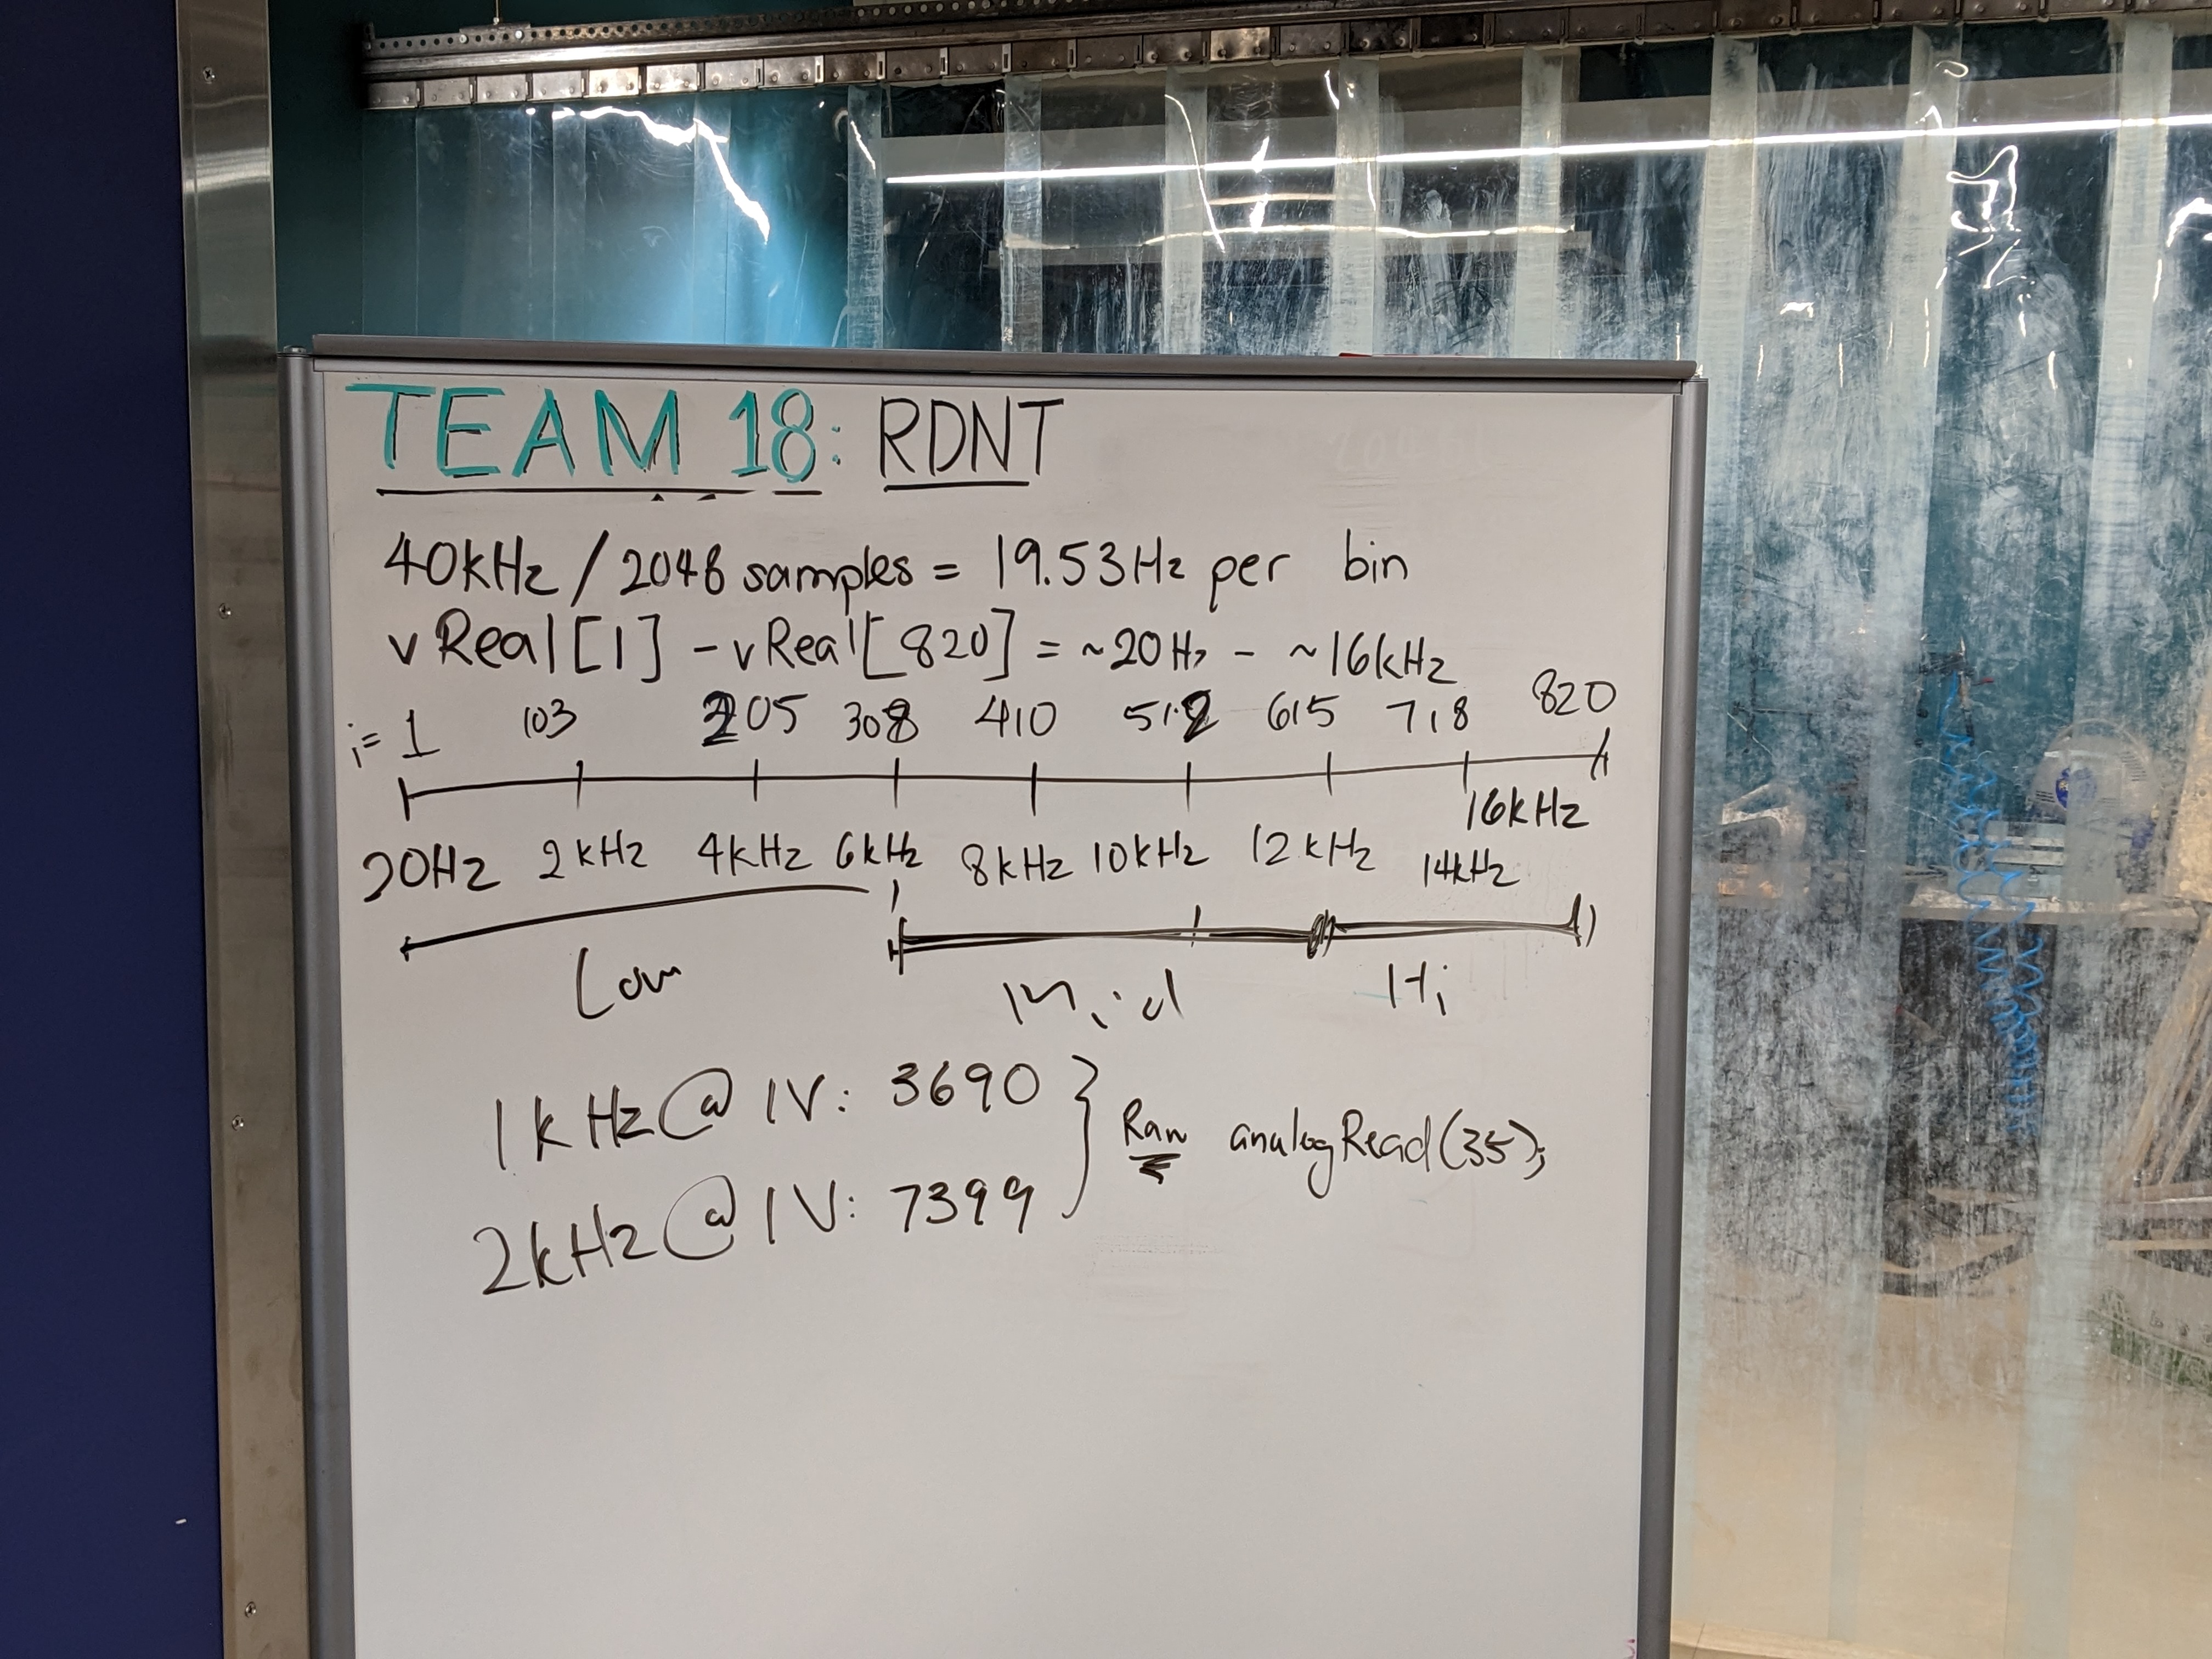 TEAM 18: RDNT
40kHz / 2048 samples = 19.53Hz per bin
vReal[1] - vReal[820] = ~20Hz - ~16kHz
i= 1 103 205 308 410 512 615 718 820
20Hz 2kHz 4kHz 6kHz 8kHz 10kHz 12kHz 14kHz 16kHz
Low Mid Hi
1kHz@1V: 3690
2kHz@1V: 7399
Raw analogRead(35);